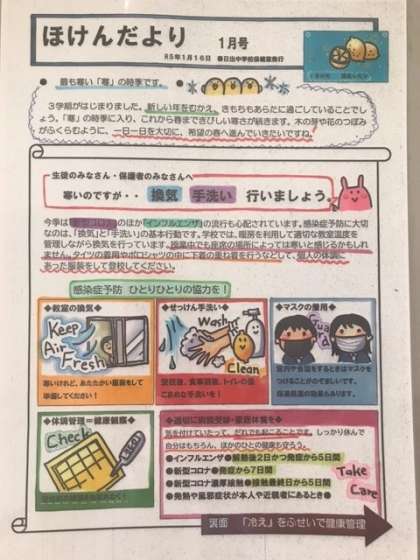 ほけんだより
1月号
R5年1月16日 ●日出中学校保健室発行
● 最も寒い「寒」の時季です。
3学期がはじまりました。新しい年をむかえ、きもちもあらたに過ごしていることでしょう。「寒」の時季に入り、これから春まできびしい寒さが続きます。木の芽や花のつぼみがふくらむように、一日一日を大切に、希望の春へ進んでいきたいですね!
生徒のみなさん・保護者のみなさんへ
寒いのですが・・ 換気 手洗い 行いましょう
今季は新型コロナのほかインフルエンザの流行も心配されています。感染症予防に大切なのは、「換気」と「手洗い」の基本行動です。学校では、暖房を利用して適切な教室温度を管理しながら換気を行っています。授業中でも座席の場所によっては寒いと感じるかもしれません。タイツの着用やポロシャツの中に下着の重ね着を行うなどして、個人の体調にあった服装をして登校してください。
感染症予防 ひとりひとりの協力を!
◆教室の換気◆
Keep
Air
Fresh
寒いけれど、あたたかい服装をして
準備してください!
◆せっけん手洗い◆
Wash
Clean
登校後、食事前後、トイレの後
こまめな手洗いを!
◆マスクの着用◆
Guard
室内や会話をするときはマスクを
つけることがのぞましいです。
◆体調管理=健康観察◆
Check
◆適切に病院受診・家庭休養を◆
気を付けていたって、だれでも起こることです。しっかり休んで
自分はもちろん、ほかのひとの健康も守ろう。
●インフルエンザ●解熱後2日かつ発症から5日間
●新型コロナ●発症から7日間
●新型コロナ濃厚接触●接触最終日から5日間
●発熱や風邪症状が本人や近親者にあるとき●
Take
Care
裏面 「冷え」をふせいで健康管理